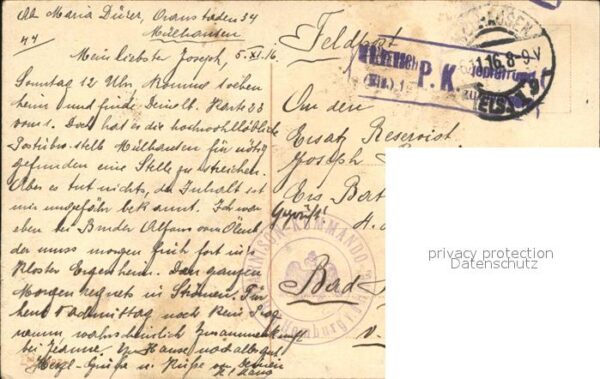 Maria Dürer,
Mülhausen
44
Mein liebster Joseph, 5. XI. 16
Sonntag 12 Uhr. Komme soeben
heim und finde Deine lb. Karte 23
vom 1. Doch hat es die hochwohllöbliche
Postüb. stelle Mülhausen für nötig
gefunden eine Stelle zu streichen.
Aber es tut nichts, der Inhalt ist
mir ungefähr bekannt. Ich war
eben bei Bruder Alfons
der muss morgen früh fort ins
Kloster Ergersheim. Den ganzen
Morgen regnets in Strömen. Für
heut Nachmittag noch kein Prog-
ramm, wahrscheinlich Zusammenkunft
bei Jeanne. Zu Hause noch alles gut.
Herzl. Grüße u. Küsse von Deiner
Feldpost
P. K.
16. 8-9 V
ELS.
An den
Ersatz Reservist
Joseph
Ers Bat
Geprüft!
GARNISON-KOMMANDO
Bad
privacy protection
Datenschutz